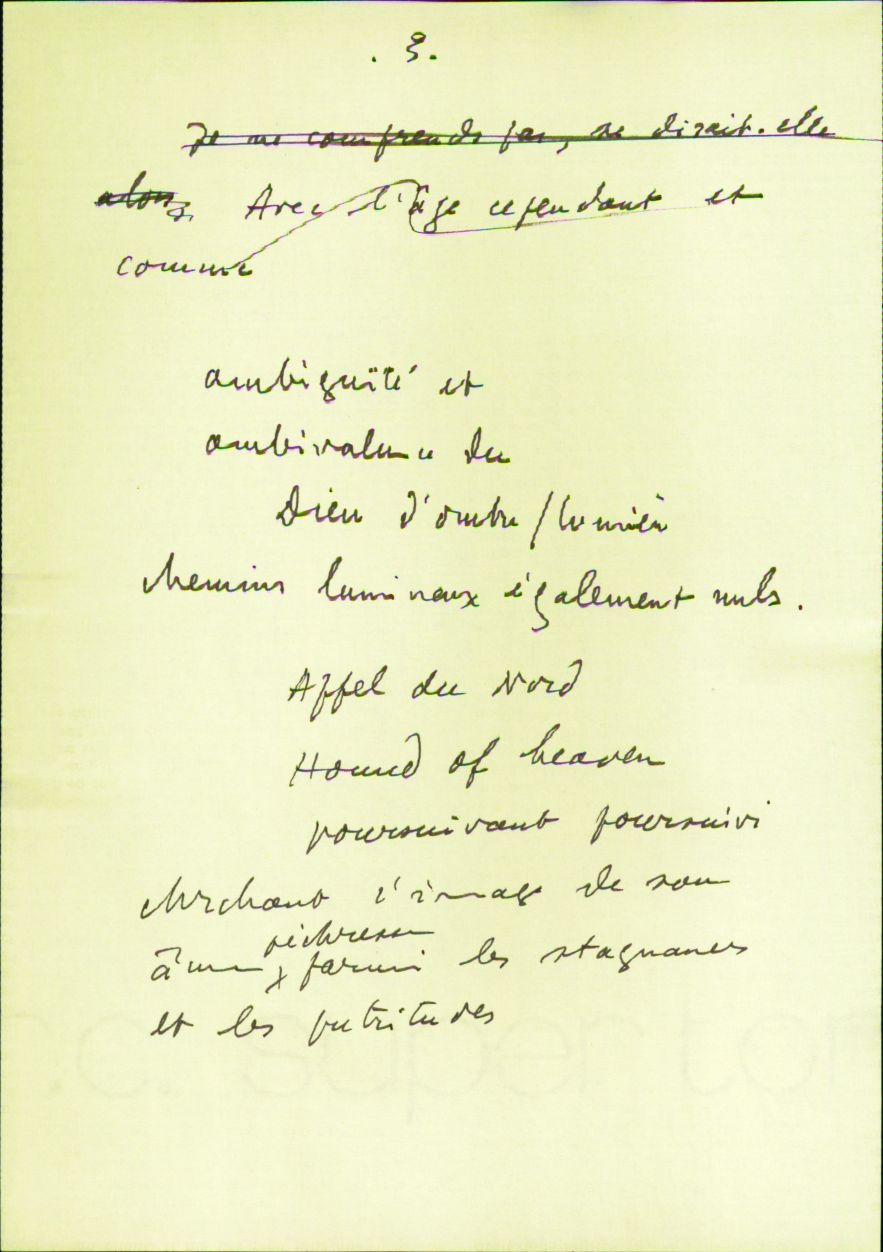 . 3.
Je ne comprends pas, se disait-elle
alors, Avec l'âge cependant et
comme
ambiguïté et
ambivalence du
Dieu d'ombre / lumière
chemins lumineux également nuls.
Appel du Nord
Hound of heaven
poursuivant poursuivi
cherchant l'image de son
pécheresse
âme parmi les stagnances
et les putritudes